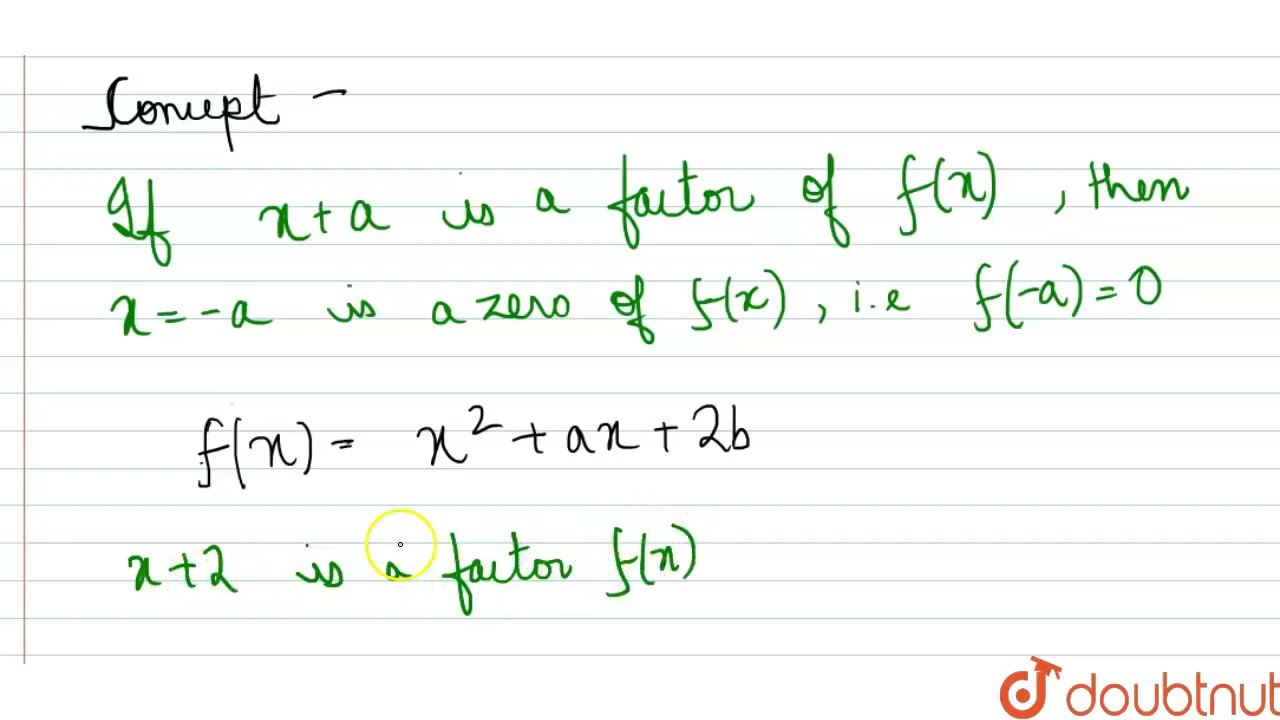 Concept -
If x+a is a factor of f(x), then
x=-a is a zero of f(x), i.e f(-a)=0
f(x)= x²+ax+2b
x+2 is a factor f(x)
doubtnut